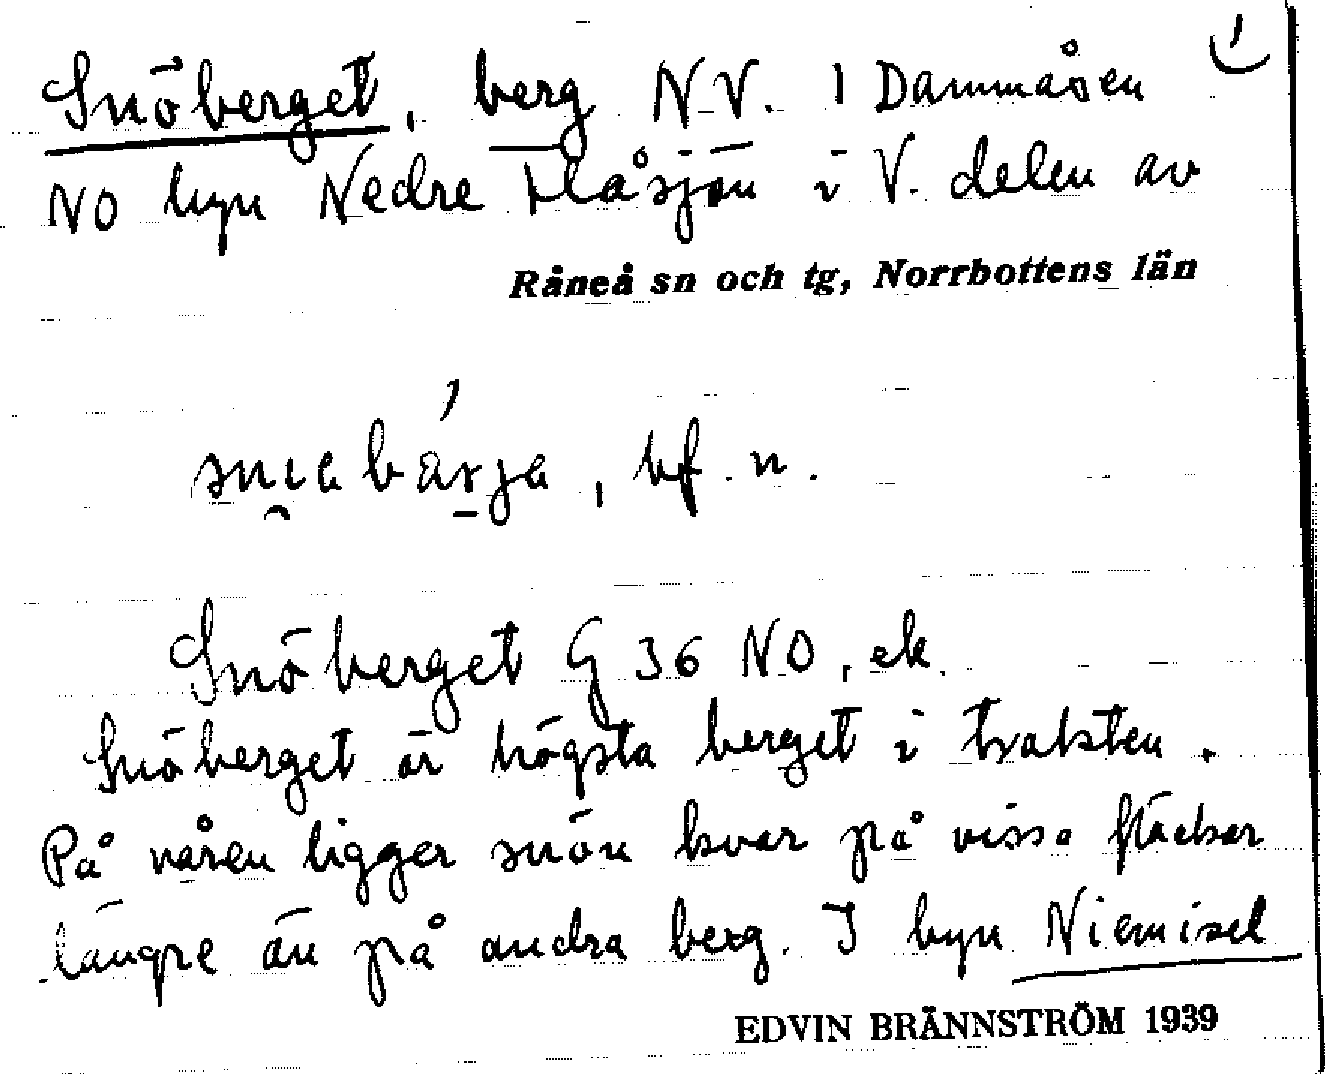 1
Snöberget, berg NV. I Dammåsen
NO byn Nedre Flåsjön i V. delen av
Råneå sn och tg, Norrbottens län
bf. n.
Snöberget G 36 NO, ek.
Snöberget är högsta berget i trakten.
På våren ligger snön kvar på vissa fläckar
längre än på andra berg. I byn Niemisel
EDVIN BRÄNNSTRÖM 1939